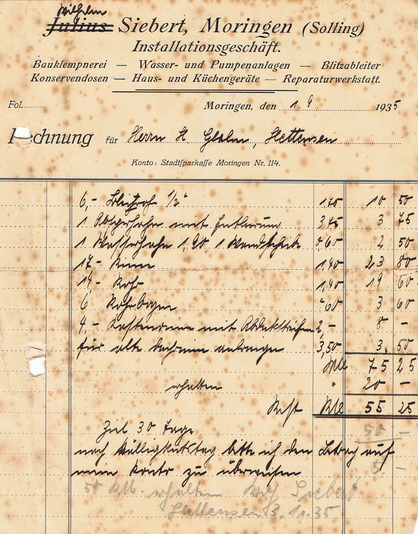 Wilhelm
Julius Siebert, Moringen (Solling)
Installationsgeschäft.
Bauklempnerei — Wasser- und Pumpenanlagen — Blitzableiter
Konservendosen — Haus- und Küchengeräte — Reparaturwerkstatt.
Fol. Moringen, den 1. 9 1935
Rechnung für Herrn H. Hettensen
Konto: Stadtsparkasse Moringen Nr. 114.
6,- 1/2" 1,75 10 50
1 mit 3,75 3 75
1 Wasserhahn 1,90 1 60 2 50
17,- 1,40 23 80
14,- Rohr 1,40 19 60
6 Rohrbogen 60 3 60
4,- mit 2,- 8 —
für alte 3,50 3 50
RM 75 25
erhalten " 20 —
Rest RM 55 25
50 —
Ziel 30 Tage
nach Fälligkeitstag bitte ich den Betrag auf
mein Konto zu überweisen
50 RM. erhalten Wilh. Siebert
Hettensen 3. 11. 35